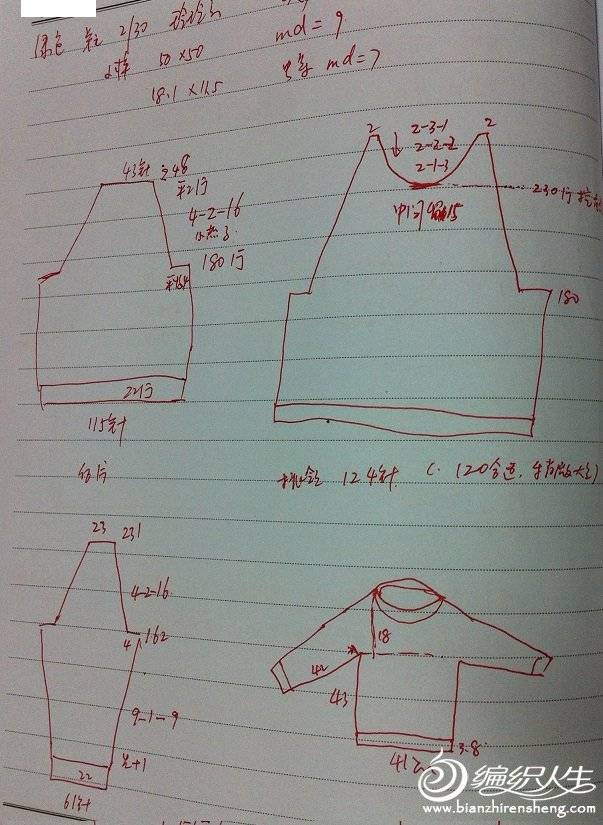 绿色 2/30
小样 50×50 md=9
18.1×11.5 md=7
43针 248
平2行
4-2-16
180行
平收4
22行
115针
后片
2 2
2-3-1
2-2-2
2-1-3
230行
中间留15
180
挑领 124针 (120合适,
23 231
4-2-16
4 162
9-1-9
先+1
22
61针
18
42
43
41
3.8
编织人生
www.bianzhirensheng.com